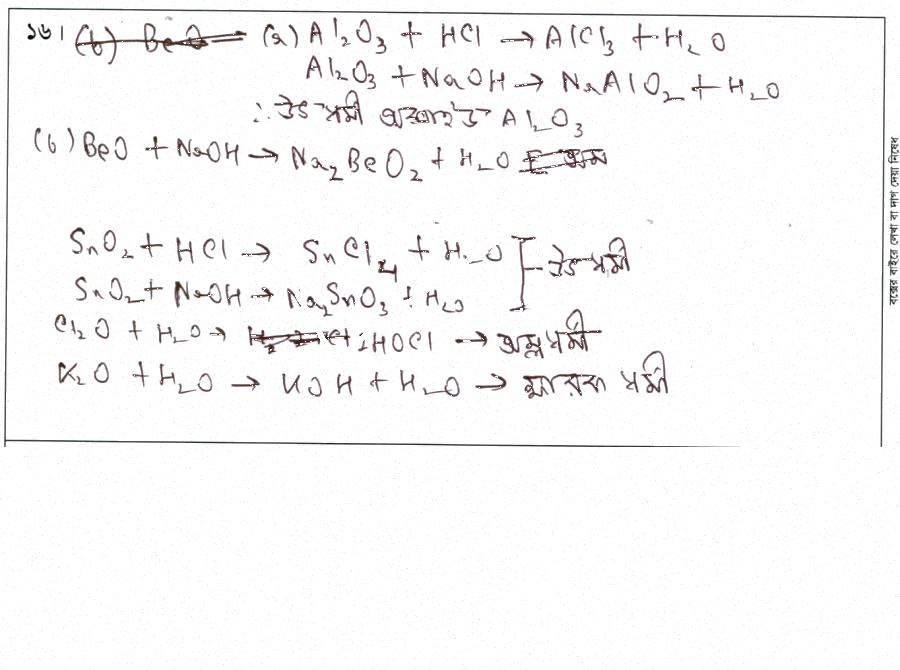 ১৬। (b) BeO (a) Al₂O₃ + HCl → AlCl₃ + H₂O
Al₂O₃ + NaOH → NaAlO₂ + H₂O
∴ উভধর্মী অক্সাইড Al₂O₃
(b) BeO + NaOH → Na₂BeO₂ + H₂O
SnO₂ + HCl → SnCl₄ + H₂O
SnO₂ + NaOH → Na₂SnO₃ + H₂O
উভধর্মী
Cl₂O + H₂O → HOCl → অম্লধর্মী
K₂O + H₂O → KOH + H₂O → ক্ষারকধর্মী
বক্সের বাইরে লেখা বা দাগ দেয়া নিষেধ